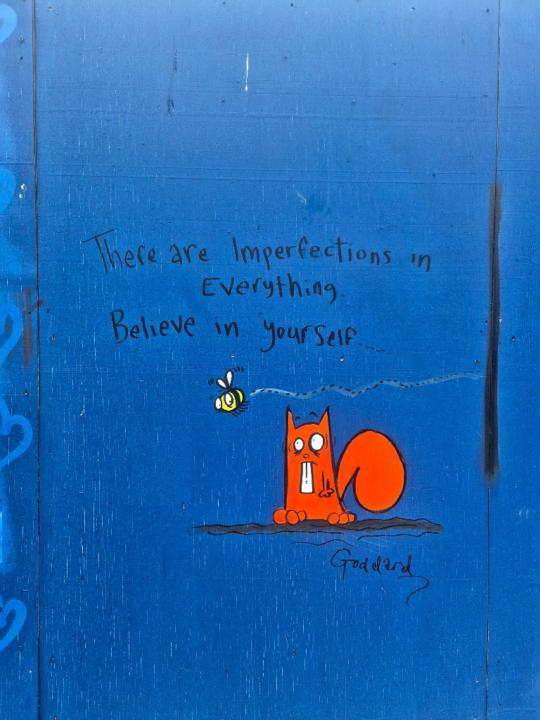 There are Imperfections in
Everything.
Believe in yourself....
Goddard